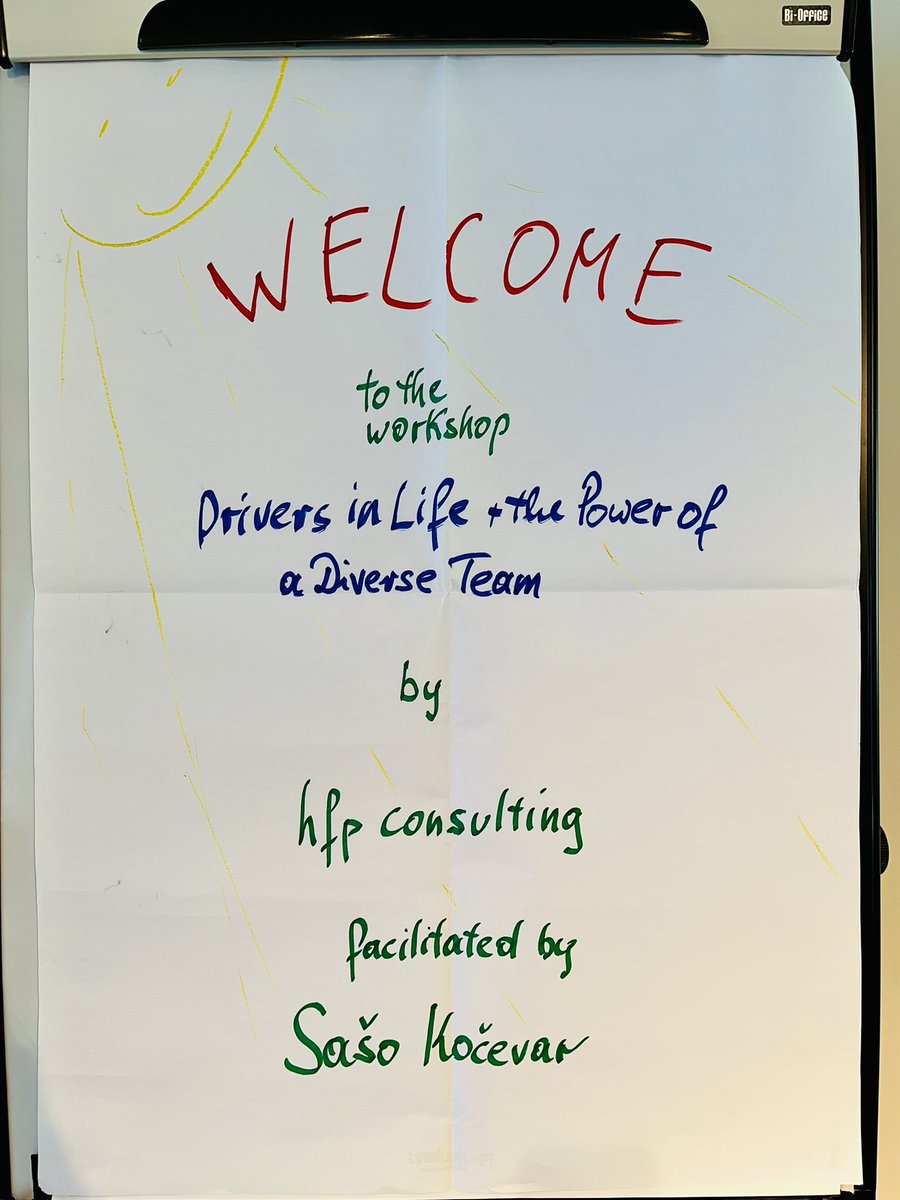 Bi-Office
WELCOME
to the
workshop
Drivers in Life + the Power of
a Diverse Team
by
hfp consulting
facilitated by
Sašo Kočevar